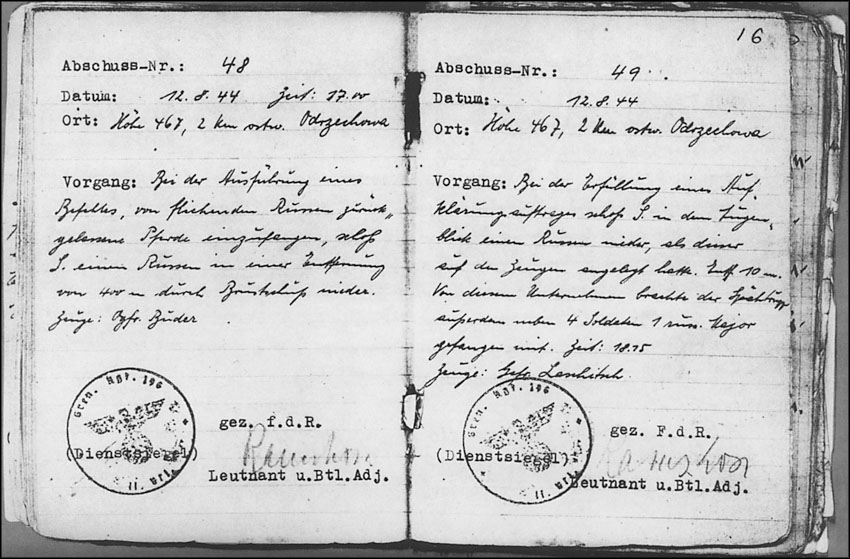 Abschuss-Nr.: 48
Datum: 12.8.44 Zeit: 17.00
Ort: Höhe 467, 2 km ostw. Odrzechowa
Vorgang: Bei der Ausführung eines
Befehles, von fliehenden Russen zurück-
gelassene Pferde einzufangen, schoß
S. einen Russen in einer Entfernung
von 400 m durch Brustschuß nieder.
Zeuge: Ogfr. Buder
gez. f.d.R.
(Dienstsiegel)
Leutnant u.Btl.Adj.
Gren. Rgt. 196
II
16
Abschuss-Nr.: 49
Datum: 12.8.44
Ort: Höhe 467, 2 km ostw. Odrzechowa
Vorgang: Bei der Erfüllung eines Auf-
klärungsauftrages schoß S. in dem Augen-
blick einen Russen nieder, als dieser
auf den Zeugen angelegt hatte. Entf. 10 m.
Von diesem Unternehmen brachte der Spähtrupp
außerdem neben 4 Soldaten 1 russ. Major
gefangen mit. Zeit: 18.15
Zeuge: Gefr.
gez. F.d.R.
(Dienstsiegel)
Leutnant u.Btl.Adj.
Gren. Rgt. 196
II